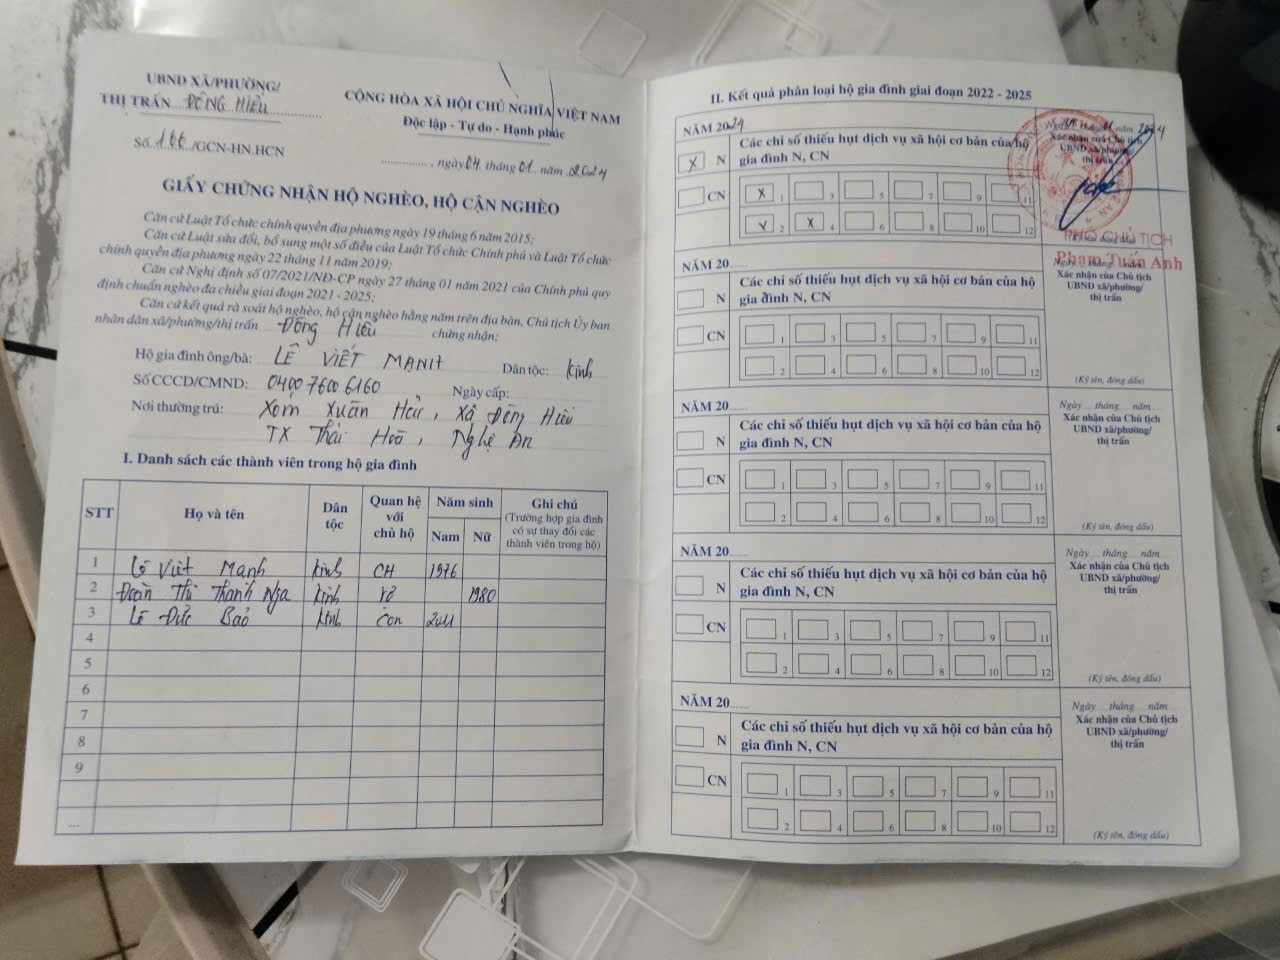 UBND XÃ/PHƯỜNG/
THỊ TRẤN ĐÔNG HIẾU
CỘNG HÒA XÃ HỘI CHỦ NGHĨA VIỆT NAM
Độc lập - Tự do - Hạnh phúc
Số: 166 /GCN-HN.HCN
, ngày 04 tháng 01 năm 2024
GIẤY CHỨNG NHẬN HỘ NGHÈO, HỘ CẬN NGHÈO
Căn cứ Luật Tổ chức chính quyền địa phương ngày 19 tháng 6 năm 2015;
Căn cứ Luật sửa đổi, bổ sung một số điều của Luật Tổ chức Chính phủ và Luật Tổ chức
chính quyền địa phương ngày 22 tháng 11 năm 2019;
Căn cứ Nghị định số 07/2021/NĐ-CP ngày 27 tháng 01 năm 2021 của Chính phủ quy
định chuẩn nghèo đa chiều giai đoạn 2021 - 2025;
Căn cứ kết quả rà soát hộ nghèo, hộ cận nghèo hằng năm trên địa bàn, Chủ tịch Ủy ban
nhân dân xã/phường/thị trấn Đông Hiếu chứng nhận:
Hộ gia đình ông/bà: LÊ VIẾT MẠNH Dân tộc: Kinh
Số CCCD/CMND: 040076006160 Ngày cấp:
Nơi thường trú: Xóm Xuân Hải, Xã Đông Hiếu
TX Thái Hoà, Nghệ An
I. Danh sách các thành viên trong hộ gia đình
STT Họ và tên Dân tộc Quan hệ với chủ hộ Năm sinh Nam Nữ Ghi chú (Trường hợp gia đình có sự thay đổi các thành viên trong hộ)
1 Lê Viết Mạnh Kinh CH 1976
2 Đoàn Thị Thanh Nga Kinh Vợ 1980
3 Lê Đức Bảo Kinh Con 2011
4
5
6
7
8
9
...
II. Kết quả phân loại hộ gia đình giai đoạn 2022 - 2025
NĂM 2024
X N
CN
Các chỉ số thiếu hụt dịch vụ xã hội cơ bản của hộ
gia đình N, CN
X 1 3 5 7 9 11
V 2 X 4 6 8 10 12
năm 2024
Xác nhận của Chủ tịch
UBND xã/phường/
thị trấn
PHÓ CHỦ TỊCH
Phạm Tuấn Anh
NĂM 20......
N
CN
Các chỉ số thiếu hụt dịch vụ xã hội cơ bản của hộ
gia đình N, CN
1 3 5 7 9 11
2 4 6 8 10 12
Ngày tháng năm
Xác nhận của Chủ tịch
UBND xã/phường/
thị trấn
(Ký tên, đóng dấu)
NĂM 20......
N
CN
Các chỉ số thiếu hụt dịch vụ xã hội cơ bản của hộ
gia đình N, CN
1 3 5 7 9 11
2 4 6 8 10 12
Ngày tháng năm
Xác nhận của Chủ tịch
UBND xã/phường/
thị trấn
(Ký tên, đóng dấu)
NĂM 20......
N
CN
Các chỉ số thiếu hụt dịch vụ xã hội cơ bản của hộ
gia đình N, CN
1 3 5 7 9 11
2 4 6 8 10 12
Ngày tháng năm
Xác nhận của Chủ tịch
UBND xã/phường/
thị trấn
(Ký tên, đóng dấu)
NĂM 20......
N
CN
Các chỉ số thiếu hụt dịch vụ xã hội cơ bản của hộ
gia đình N, CN
1 3 5 7 9 11
2 4 6 8 10 12
Ngày tháng năm
Xác nhận của Chủ tịch
UBND xã/phường/
thị trấn
(Ký tên, đóng dấu)